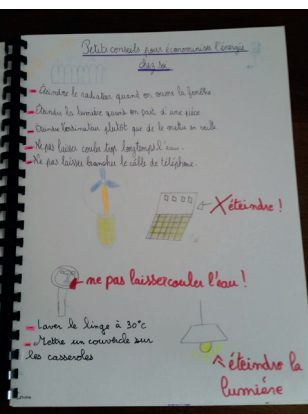 Petits conseils pour économiser l'énergie
chez soi
- Éteindre le radiateur quand on ouvre la fenêtre
- Éteindre la lumière quand on part d'une pièce
- Éteindre l'ordinateur plutôt que de le mettre en veille
- Ne pas laisser couler trop longtemps l'eau.
- Ne pas laisser brancher le câble de téléphone.
éteindre !
ne pas laisser couler l'eau !
- Laver le linge à 30°C
- Mettre un couvercle sur
les casseroles
éteindre la
lumière